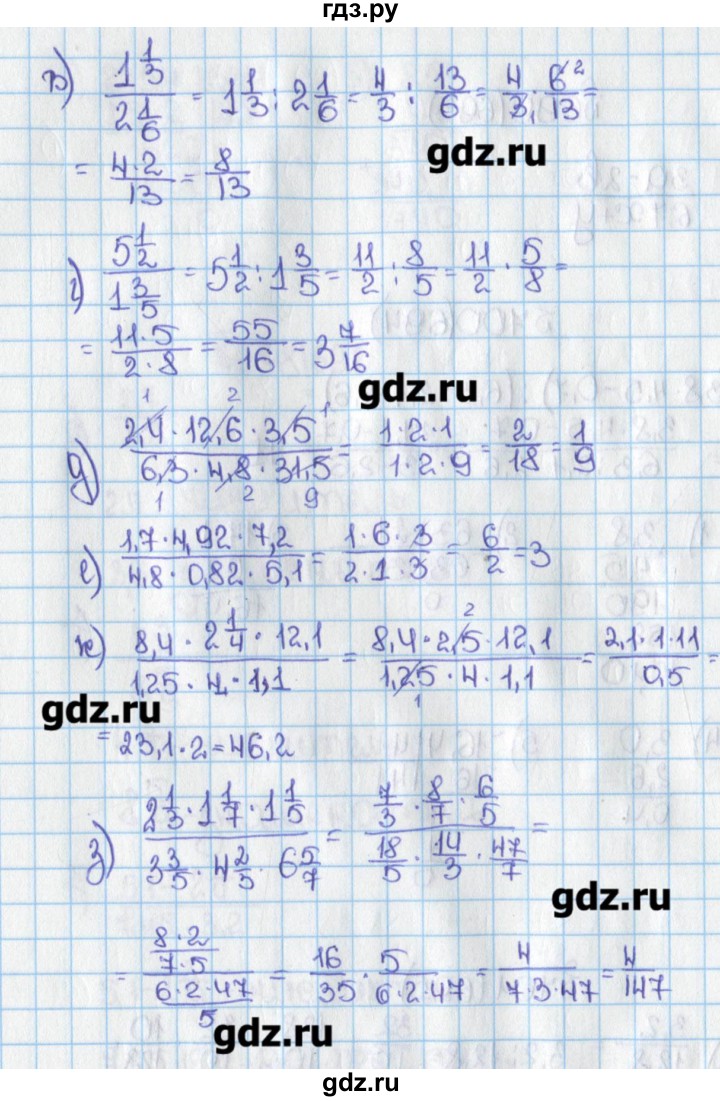 гдз.ру
в) 1 1/3 / 2 1/6 = 1 1/3 : 2 1/6 = 4/3 : 13/6 = 4/3 · 6²/13 =
gdz.ru
= 4·2/13 = 8/13
г) 5 1/2 / 1 3/5 = 5 1/2 : 1 3/5 = 11/2 : 8/5 = 11/2 · 5/8 =
= 11·5/2·8 = 55/16 = 3 7/16
gdz.ru
1 2 1
д) 2,4 · 12,6 · 3,5 / 6,3 · 4,8 · 31,5 = 1·2·1/1·2·9 = 2/18 = 1/9
1 2 9
е) 1,7 · 4,92 · 7,2 / 4,8 · 0,82 · 5,1 = 1·6·3/2·1·3 = 6/2 = 3
2
ж) 8,4 · 2 1/4 · 12,1 / 1,25 · 4 · 1,1 = 8,4 · 2,5 · 12,1 / 1,25 · 4 · 1,1 = 2,1·1·11/0,5 =
1
gdz.ru
= 23,1·2 = 46,2
з) 2 1/3 · 1 1/7 · 1 1/5 / 3 3/5 · 4 2/5 · 6 5/7 = 7/3 · 8/7 · 6/5 / 18/5 · 14/3 · 47/7 =
gdz.ru
= 8·2/7·5 / 6·2·47/5 = 16/35 · 5/6·2·47 = 4/7·3·47 = 4/147
gdz.ru
gdz.ru